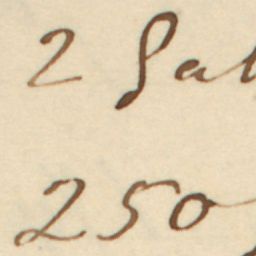 2 Sal
250